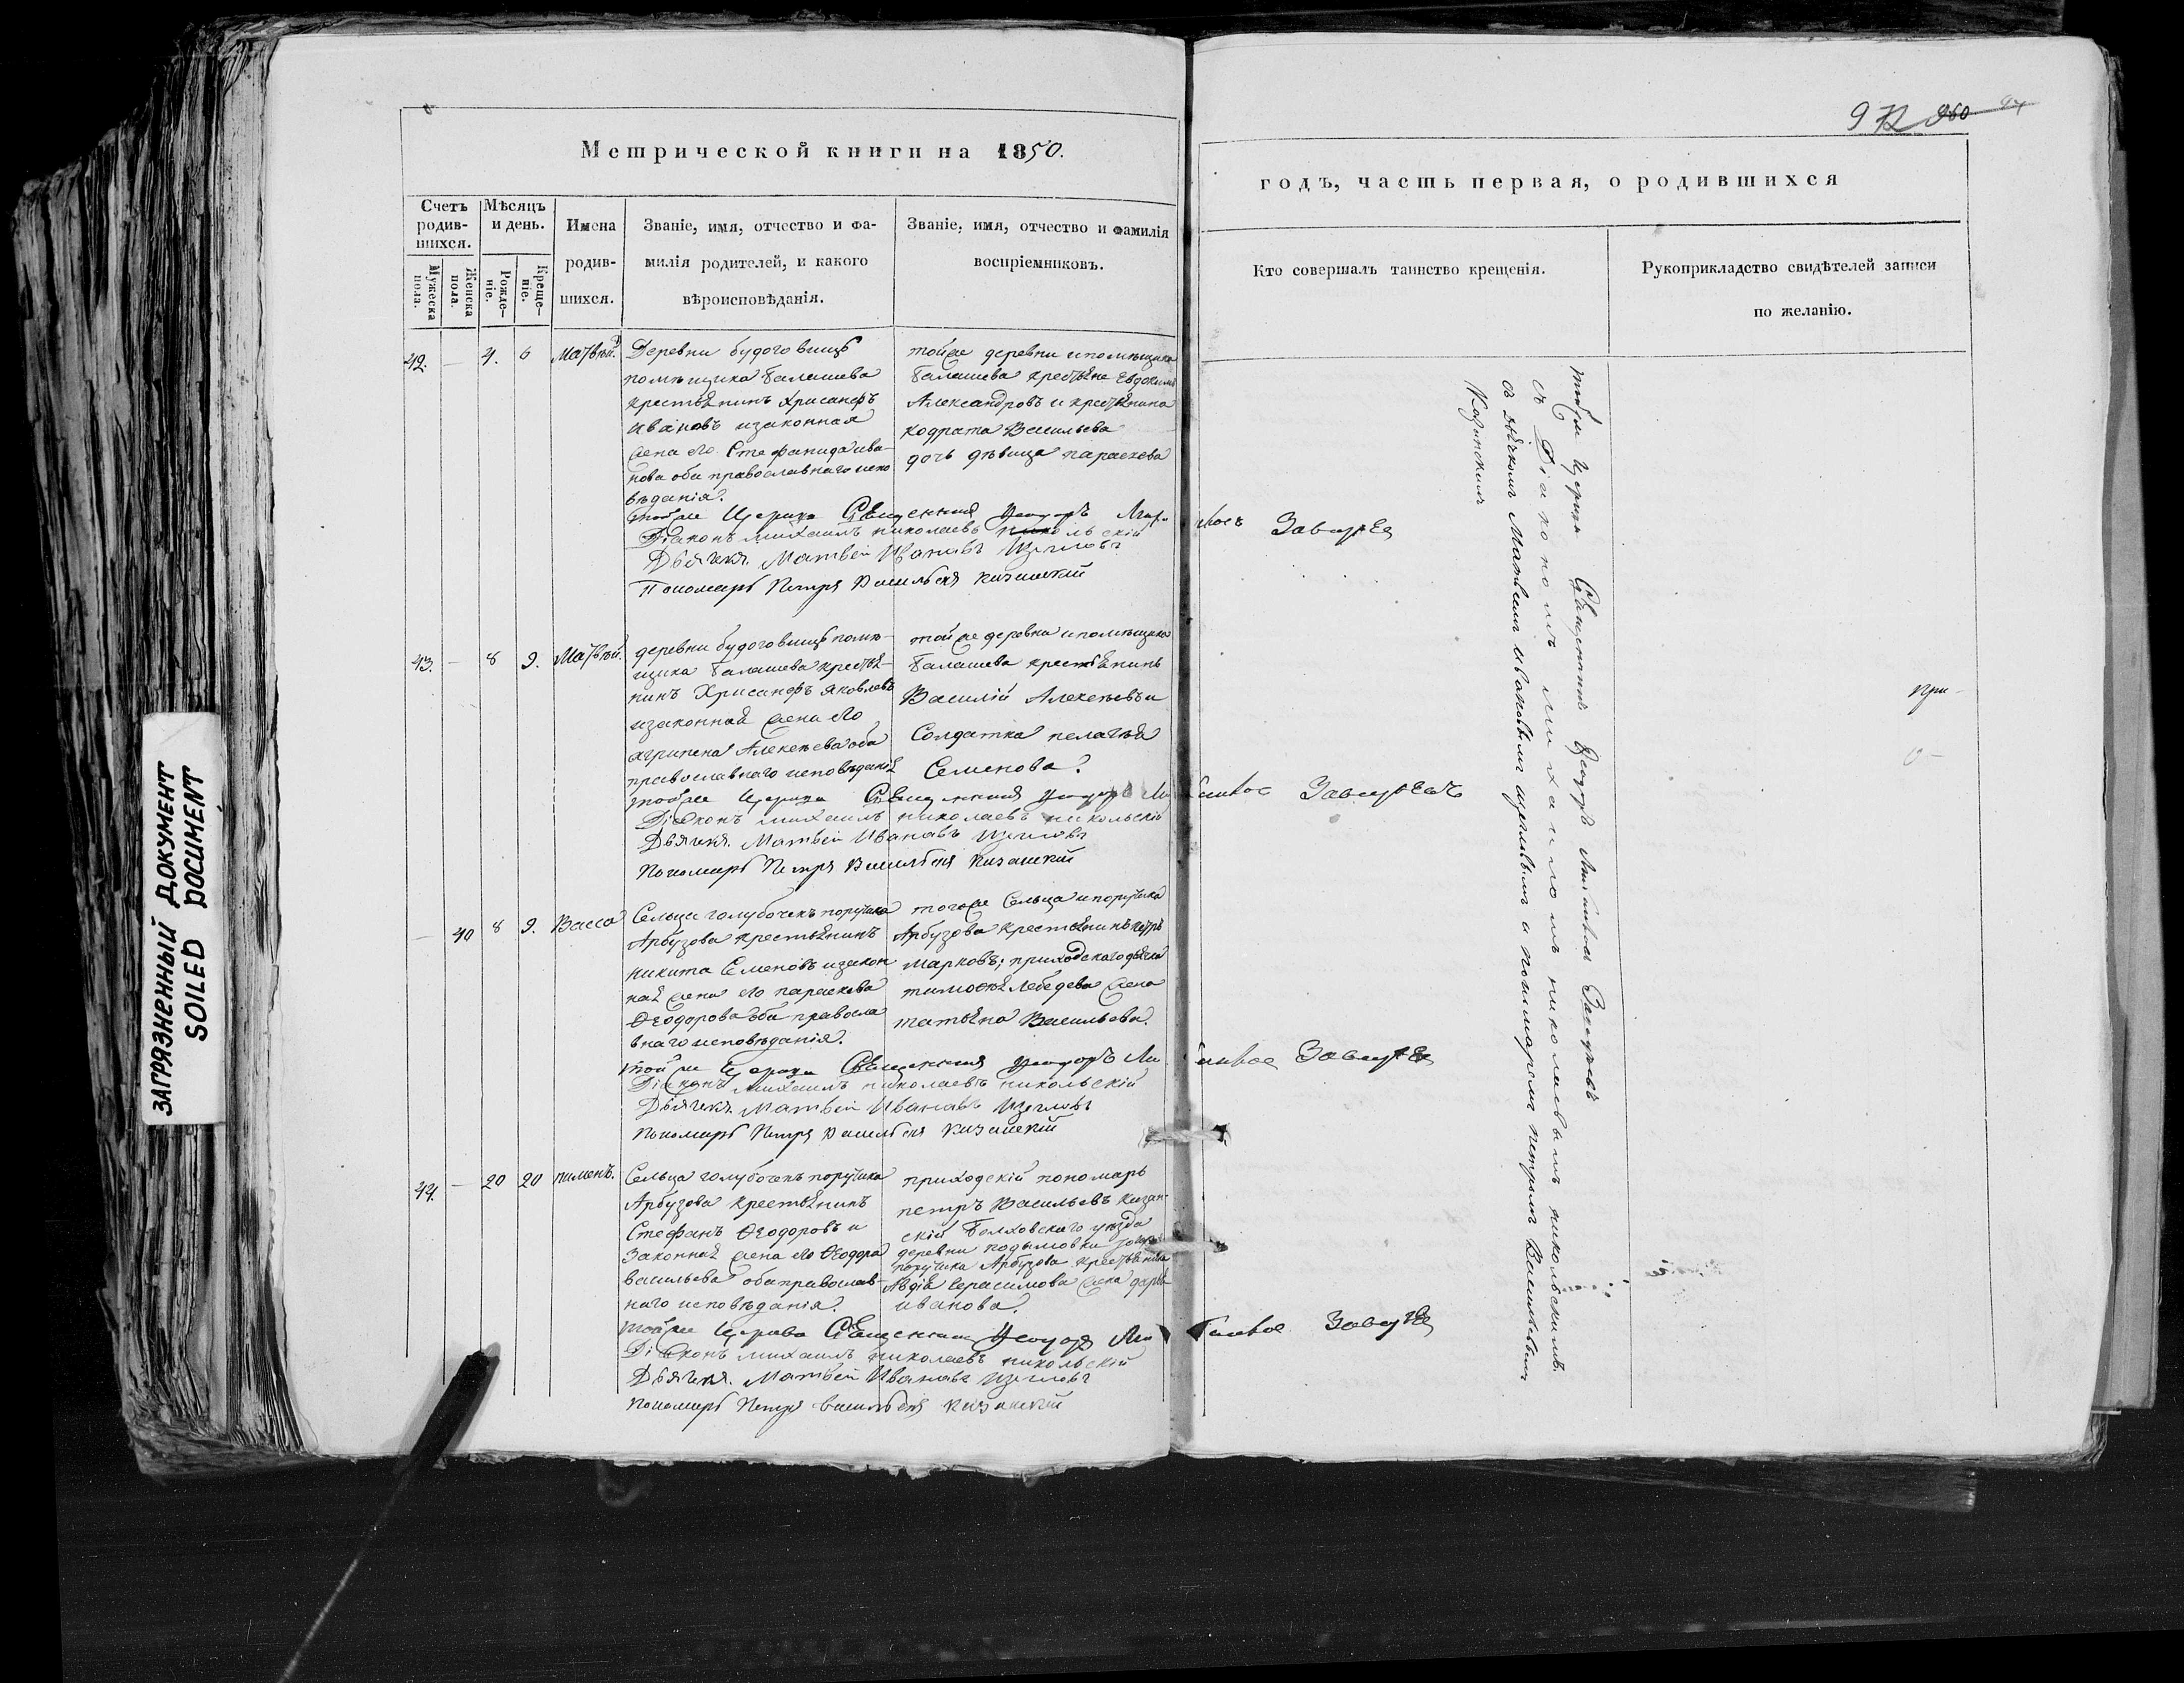 972 960 94
Метрической книги на 1850.
годъ, часть первая, о родившихся
Счетъ родив-шихся.
Мужеска пола.
Женска пола.
Мѣсяцъ и день.
Рожде-ніе.
Креще-ніе.
Имена
родив-
шихся.
Званіе, имя, отчество и фа-
милія родителей, и какого
вѣроисповѣданія.
Званіе, имя, отчество и фамилія
воспріемниковъ.
Кто совершалъ таинство крещенія.
Рукоприкладство свидѣтелей записи
по желанію.
42. — 4. 6 Матвѣй.
Деревни будоговищь
помѣщика Балашева
крестьянинъ Хрисанфъ
Ивановъ изаконная
жена его Стефанида ива-
нова оба православнаго испо
вѣданія.
тойже деревни ипомѣщика
Балашева крестьяне Евдокимъ
Александровъ и крестьянина
кодрата Васильева
дочь дѣвица параскева
тойже Церкви Священникъ Ѳеодоръ
Завьялов
Діаконъ михаилъ николаевъ никольскій
Дьячекъ Матвей Ивановъ Щегловъ
Пономарь Петръ Васильевъ Казанскій
43. — 8 9. Матвѣй.
деревни будоговищь помѣ-
щика Балашева крестья-
нинъ Хрисанфъ яковлевъ
изаконная жена его
агрипена Алексѣева оба
православнаго исповѣданія
той же деревни ипомѣщика
Балашева крестьянинъ
Василій Алексѣевъ и
Солдатка пелагѣя
Семенова.
тойже Церкви Священникъ Ѳеодоръ
Діяконъ михаилъ николаевъ никольскій
Дьячекъ Матвей Ивановъ Щегловъ
Пономарь Петръ Васильевъ Казанскій
— 40 8 9. Васса
Сельца голубочекъ поручика
Арбузова крестьянинъ
никита Семеновъ изакон
ная жена его параскева
Ѳеодорова оба правосла
внаго исповѣданія.
тогоже Сельца ипоручика
Арбузова крестьянинъ петръ
марковъ; приходскаго дьячка
тимоѳея Лебедева жена
татьяна Васильева.
той же Церкви Священникъ Ѳеодоръ
Діяконъ михаилъ николаевъ никольскій
Дьячекъ Матвей Ивановъ Щегловъ
Пономарь Петръ Васильевъ Казанскій
44. — 20 20 пименъ.
Сельца голубочекъ поручика
Арбузова крестьянинъ
Стефанъ Ѳеодоровъ и
Законная жена его Ѳеодора
васильева оба православ-
наго исповѣданія.
приходскій пономарь
петръ Васильевъ Казан-
скій Болховскаго уѣзда
деревни подымовки
поручика Арбузова крестьянина
Авдія Герасимова жена дарья
иванова.
тойже Церкви Священникъ Ѳеодоръ
Діяконъ михаилъ николаевъ никольскій
Дьячекъ Матвей Ивановъ Щегловъ
Пономарь Петръ васильевъ Казанскій
тойже Церкви Священникъ Ѳеодоръ
съ Діакономъ михаиломъ николаевымъ никольскимъ
съ дьячкомъ Матвеемъ ивановымъ щегловымъ и пономаремъ петромъ Васильевымъ
Казанскимъ
при-
ЗАГРЯЗНЕННЫЙ ДОКУМЕНТ
SOILED DOCUMENT